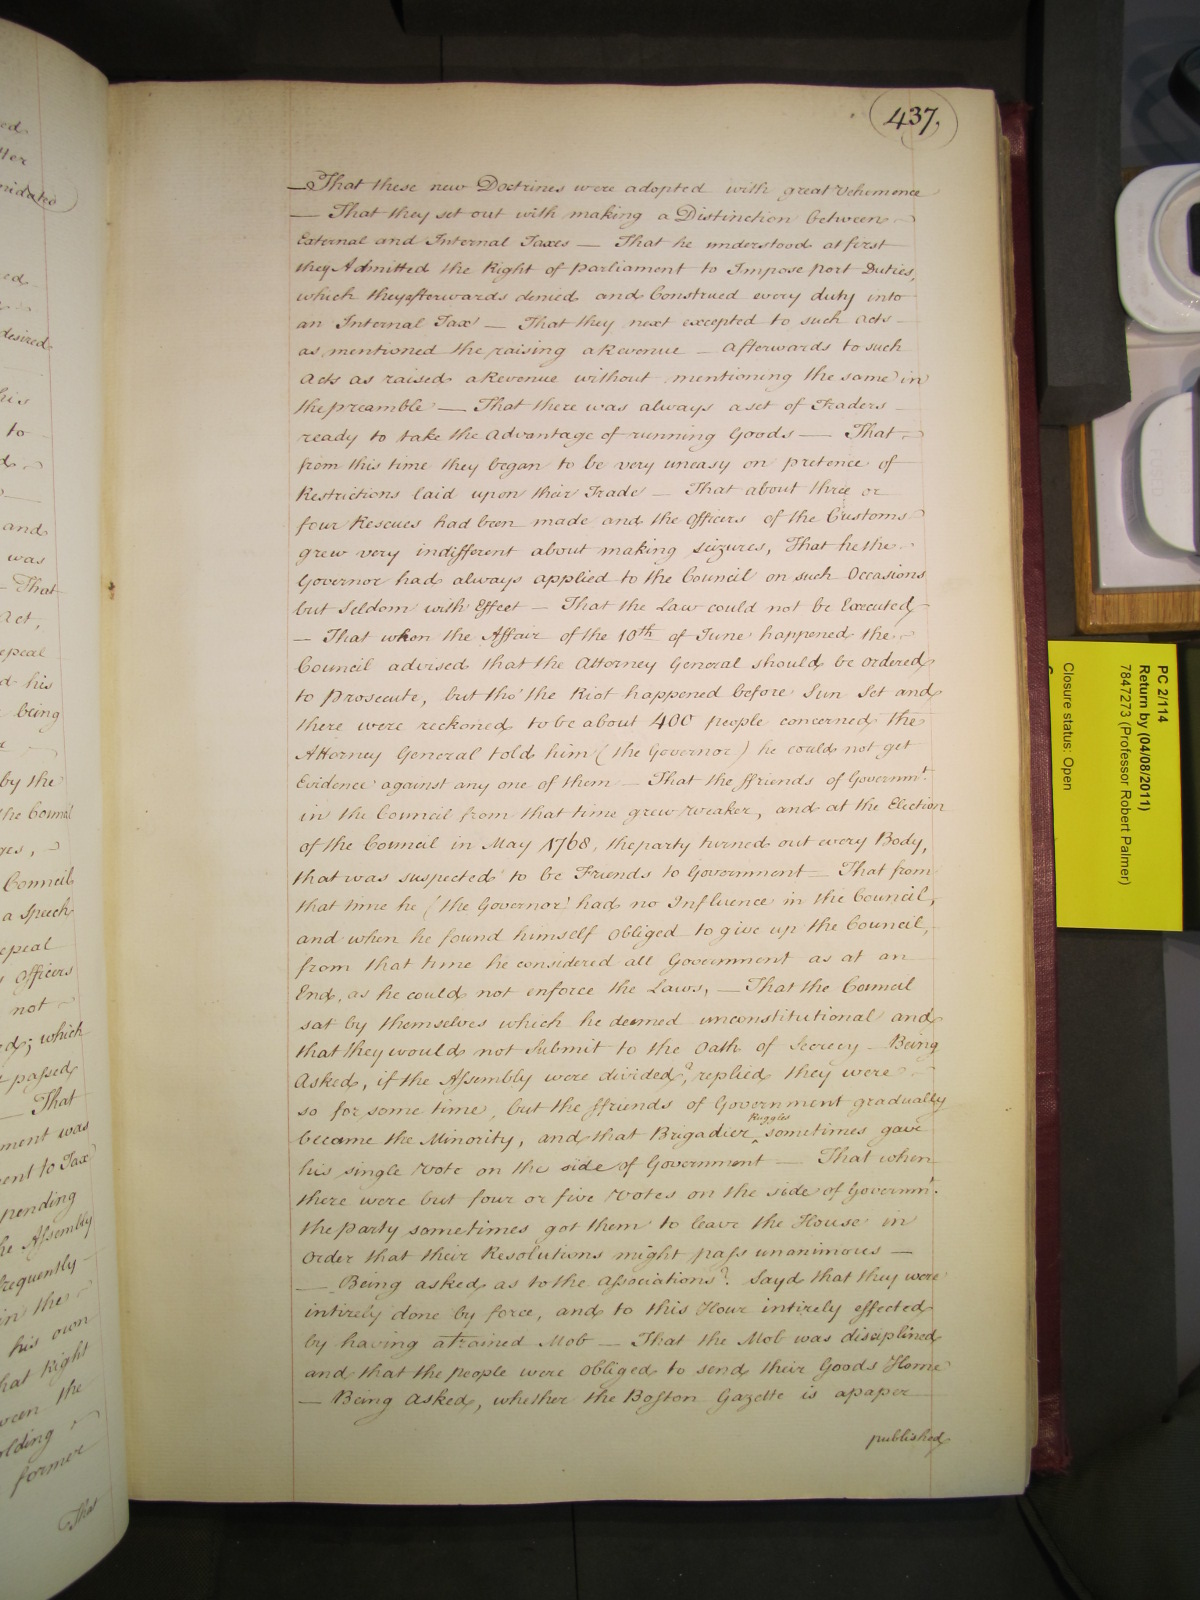 437.
— That these new Doctrines were adopted with great Vehemence
— That they set out with making a Distinction between
External and Internal Taxes — That he understood at first
they Admitted the Right of Parliament to Impose Port Duties,
which they afterwards denied and Construed every duty into
an Internal Tax — That they next excepted to such Acts
as mentioned the raising a Revenue — Afterwards to such
Acts as raised a Revenue without mentioning the same in
the preamble — That there was always a set of Traders
ready to take the Advantage of running Goods — That
from this time they began to be very uneasy on pretence of
Restrictions laid upon their Trade — That about three or
four Rescues had been made and the Officers of the Customs
grew very indifferent about making seizures, That he the
Governor had always applied to the Council on such Occasions
but Seldom with Effect — That the Law could not be Executed
— That when the Affair of the 10th of June happened the
Council advised that the Attorney General should be ordered
to Prosecute, but tho' the Riot happened before Sun Set and
there were reckoned to be about 400 People concerned the
Attorney General told him (the Governor) he could not get
Evidence against any one of them — That the ffriends of Governmt.
in the Council from that time grew weaker, and at the Election
of the Council in May 1768, the party turned out every Body,
that was suspected to be Friends to Government — That from
that time he (the Governor) had no Influence in the Council,
and when he found himself Obliged to give up the Council,
from that time he considered all Government as at an
End, as he could not enforce the Laws, — That the Council
sat by themselves which he deemed unconstitutional and
that they would not Submit to the Oath of Secrecy — Being
Asked, if the Assembly were divided?, replied they were
so for some time, but the ffriends of Government gradually
became the Minority, and that Brigadier ^Ruggles sometimes gave
his single Vote on the side of Government — That when
there were but four or five Votes on the side of Governmt.
the Party sometimes got them to leave the House in
Order that their Resolutions might pass unanimous —
— Being asked as to the Associations?. Sayd that they were
intirely done by force, and to this Hour intirely effected
by having a Trained Mob — That the Mob was disciplined
and that the People were Obliged to send their Goods Home
— Being Asked, whether the Boston Gazette is a paper
published
PC 2/114
Return by (04/08/2011)
7847273 (Professor Robert Palmer)
Closure status: Open